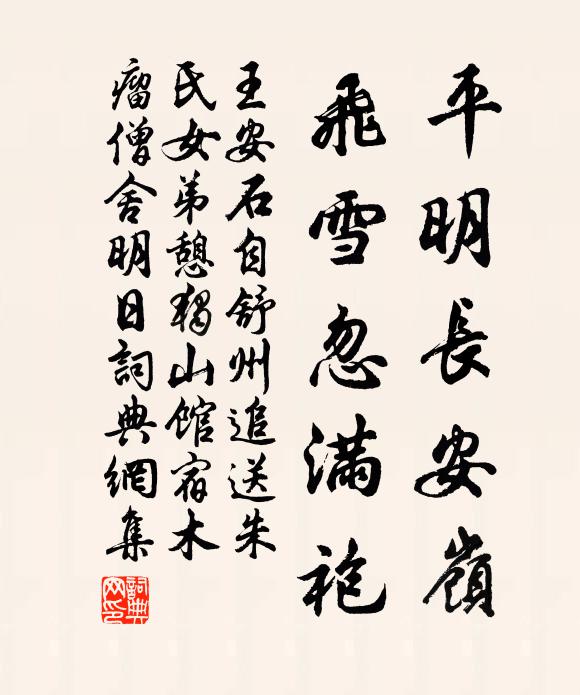 平明長安嶺
飛雪忽滿袍
王安石自舒州追送朱
氏女弟憩獨山館宿木
瘤僧舍明日詞典網集
詞典網印